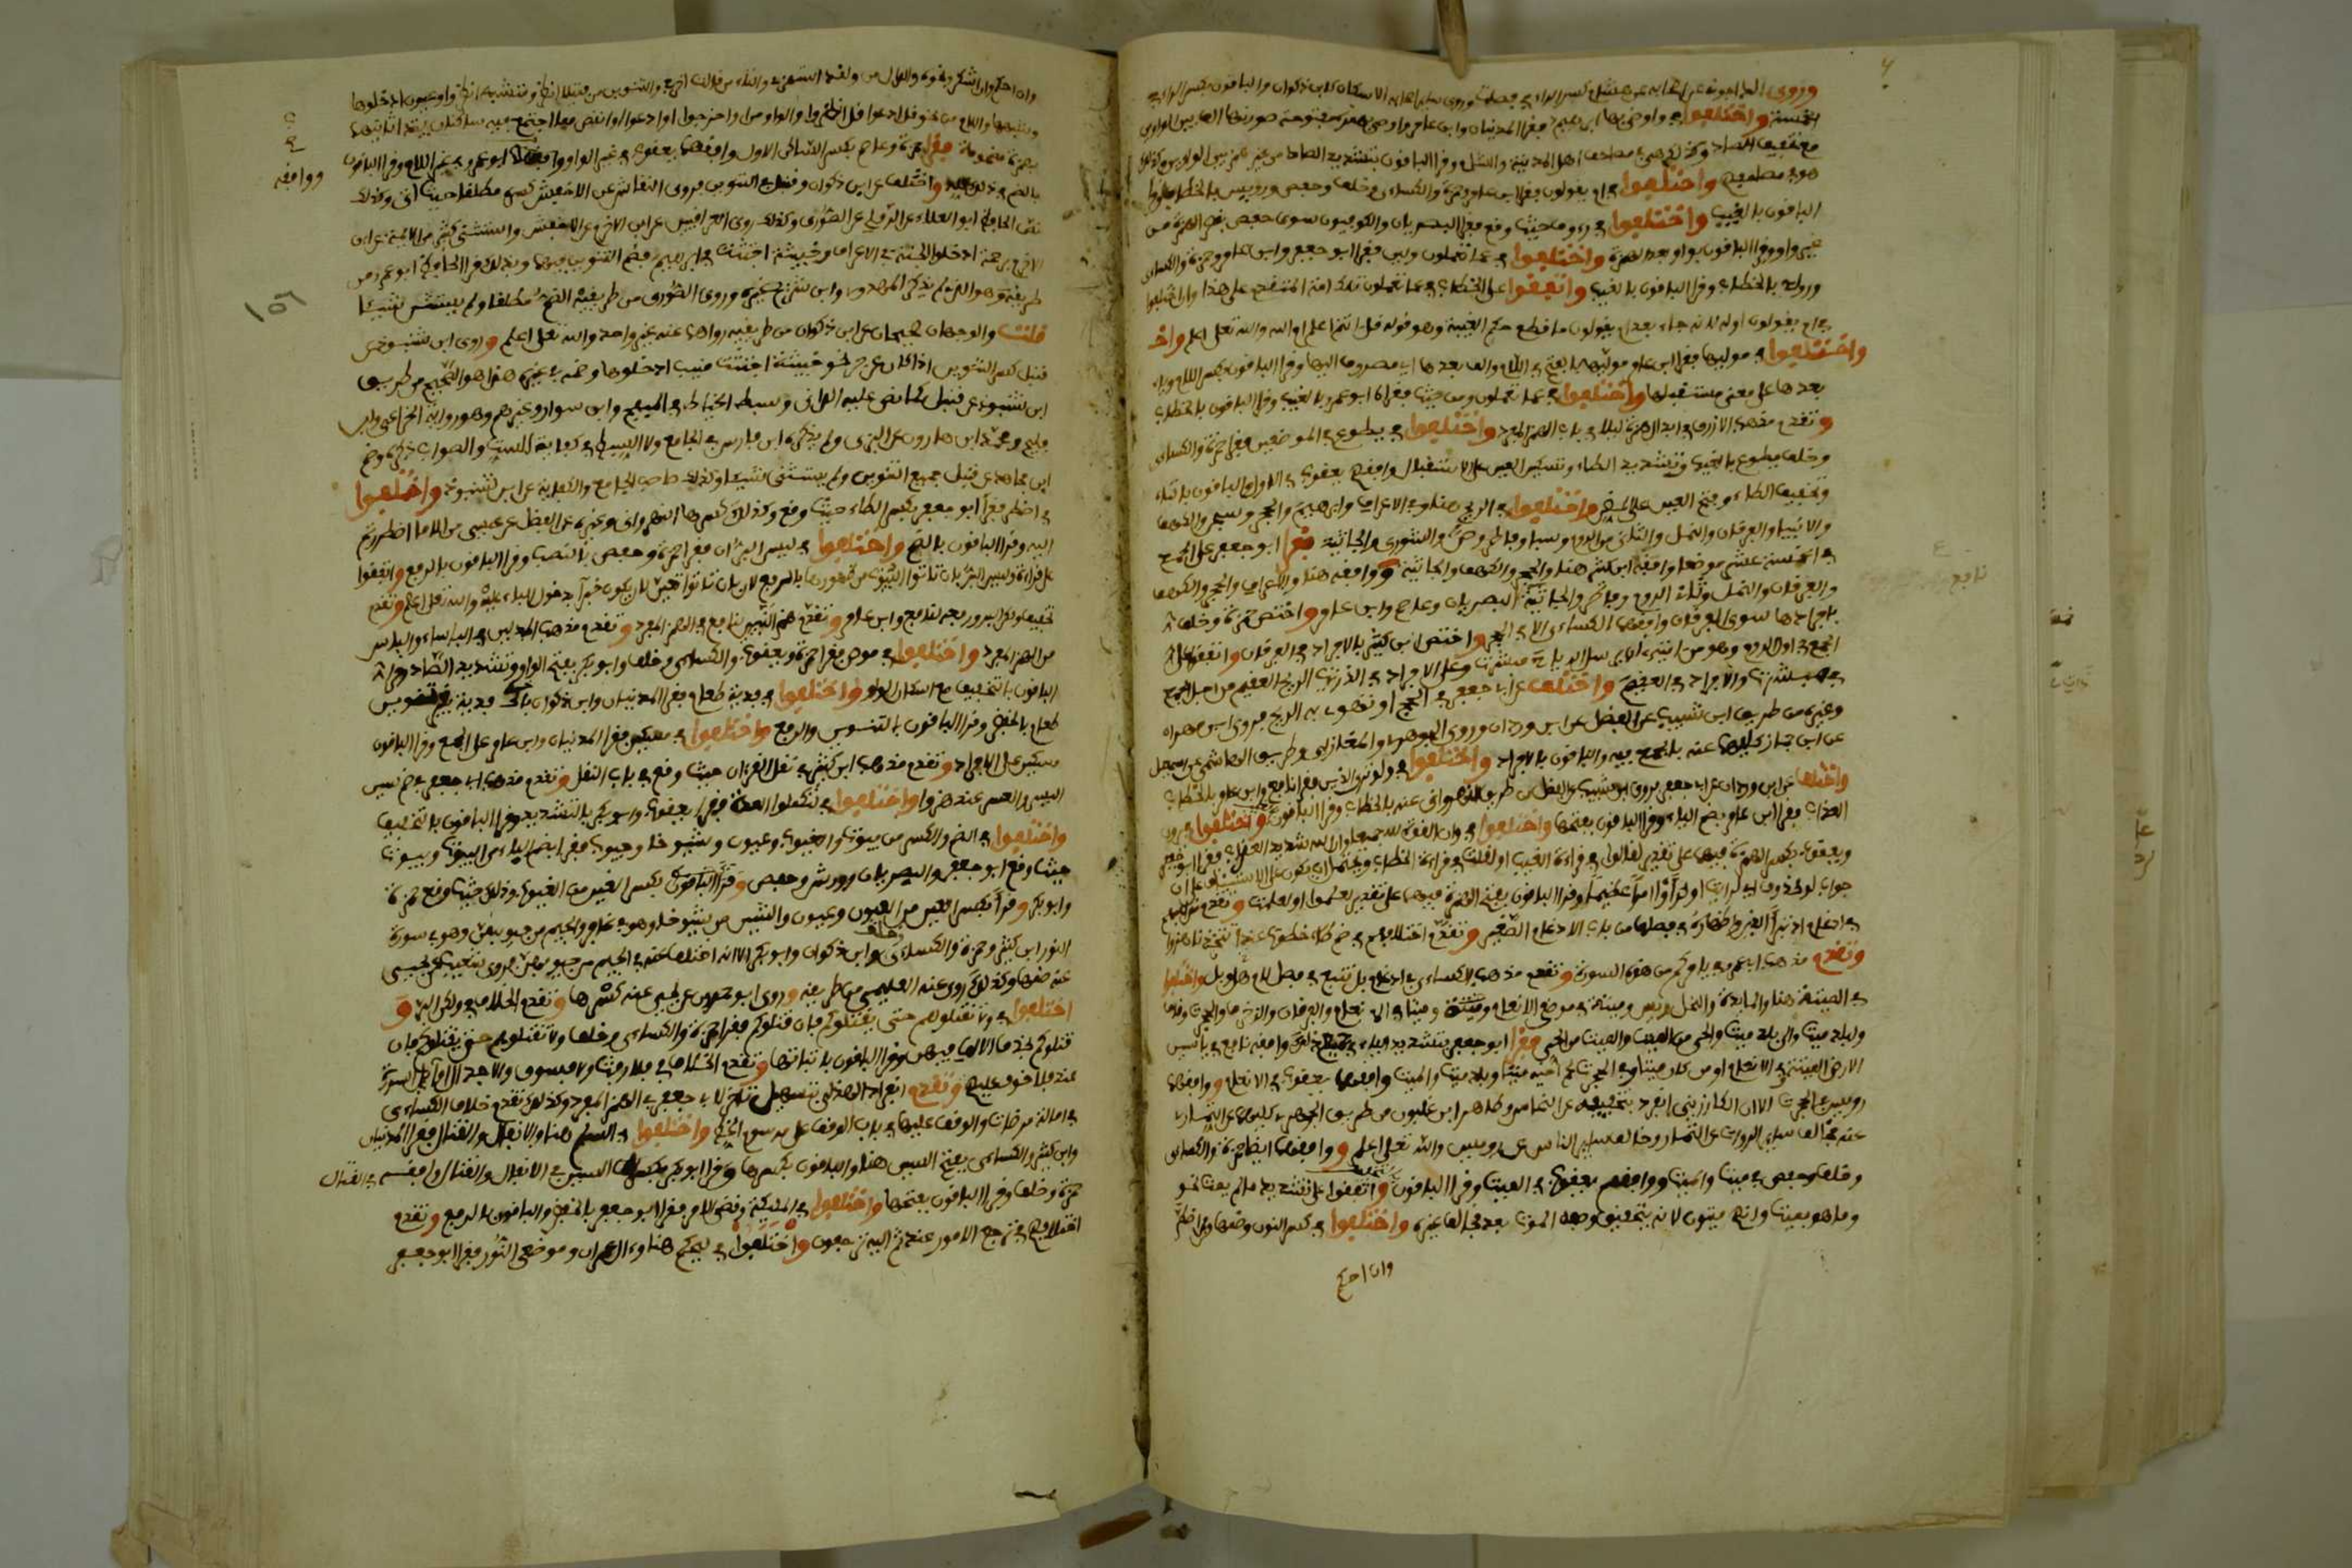 وروى الداجوني عن اصحابه عن هشام كسر الراء في فصلت وروى سائر اصحابه الاسكان كابن ذكوان والباقون بكسر الراء في
الخمسة واختلفوا في واوصى بها ابراهيم فقرا المدنيان وابن عامر واوصى بهمزة مفتوحة صورتها الف بين الواوين
مع تخفيف الصاد وكذلك هي في مصاحف اهل المدينة والشام وقرا الباقون بتشديد الصاد من غير همز بين الواوين وكذلك
هو في مصاحفهم واختلفوا في ام يقولون فقرا ابن عامر وحمزة والكسائي وخلف وحفص ورويس بالخطاب وقرا
الباقون بالغيب واختلفوا في رءوف حيث وقع فقرا البصريان والكوفيون سوى حفص بقصر الهمزة من
غير واو وقرا الباقون بواو بعد الهمزة واختلفوا في عما تعملون ولين فقرا ابو جعفر وابن عامر وحمزة والكسائي
وروح بالخطاب وقرا الباقون بالغيب واتفقوا على الخطاب في عما تعملون تلك امة المتقدم على هذا وان اختلفوا
في ام يقولون اوله لانه جاء بعد ام يقولون ما قطع حكم الغيبة وهو قوله قل انتم اعلم ام الله والله تعالى اعلم واخـ
واختلفوا في موليها فقرا ابن عامر مولاها بفتح اللام والف بعدها اي مصروف اليها وقرا الباقون بكسر اللام وياء
بعدها على معنى مستقبلها واختلفوا في عما تعملون ومن حيث فقرا ابو عمرو بالغيب وقرا الباقون بالخطاب
وتقدم مذهب الازرق في ابدال همزة ليلا في باب الهمز المفرد واختلفوا في يطوع في الموضعين فقرا حمزة والكسائي
وخلف يطوع بالغيب وتشديد الطاء واسكان العين على الاستقبال وافقهم يعقوب في الاول والباقون بالتاء
وتخفيف الطاء وفتح العين على المضي واختلفوا في الريح هنا وفي الاعراف وابرهيم والحجر وسبحن والكهف
والانبياء والفرقان والنمل والثاني من الروم وسبا وفاطر وص والشورى والجاثية فقرا ابو جعفر على الجمع
في الخمسة عشر موضعا وافقه ابن كثير هنا والحجر والكهف والجاثية ووافقه هنا والاعراف والحجر والكهف
والفرقان والنمل وثاني الروم وفاطر والجاثية البصريان وعاصم وابن عامر واختص حمزة وخلف
بافرادها سوى الفرقان وافقهما الكسائي الا في الحجر واختص ابن كثير بالافراد في الفرقان واتفقوا على
الجمع في اول الروم وهو من اياته ان يرسل الرياح مبشرات وعلى الافراد في الذاريات الريح العقيم من اجل الجمع
في مبشرات والافراد في العقيم واختلف عن ابي جعفر في الحج او تهوي به الريح فروى ابن مهران
وغيره من طريق ابن شبيب عن الفضل عن ابن وردان وروى الجوهري والمغازلي من طريق الهاشمي عن اسمعيل
عن ابن جماز كليهما عنه بالجمع فيه والباقون بالافراد واختلفوا في ولو ترى الذين فقرا نافع وابن عامر بالخطاب
واختلف عن ابن وردان عن ابي جعفر فروى ابن شبيب عن الفضل من طريق النهرواني عنه بالخطاب وقرا الباقون واختلفوا في يرون
العذاب فقرا ابن عامر بضم الياء وقرا الباقون بفتحها واختلفوا في وان القوة لله جميعا وان الله شديد العذاب فقرا ابو جعفر
ويعقوب بكسر الهمزة فيهما على تقدير لقالوا في قراءة الغيب او لقلت في قراءة الخطاب ويحتمل ان يكون على الاستيناف على ان
جواب لو محذوف اي لرايت او لراوا امرا عظيما وقرا الباقون بفتح الهمزة فيهما على تقدير لعلموا او لعلمت وتقدم
في ادغام اذ تبرا الذين واظهاره في فصلها من باب الادغام الصغير وتقدم اختلافهم في ضم طاء خطوات عند اتتخذنا هزوا
وتقدم مذهب ابي عمرو في يامركم من هذه السورة وتقدم مذهب الكسائي في ادغام بل نتبع في فصل لام هل وبل واختلفوا
في الميتة هنا والمايدة والنحل ويس وميتة في موضعي الانعام وميتا في الانعام والفرقان والزخرف والحجرات وق
ولبلد ميت والى بلد ميت والحي من الميت والميت من الحي فقرا ابو جعفر بتشديد الياء في جميع ذلك وافقه نافع في ياسين
الارض الميتة وفي الانعام او من كان ميتا وفي الحجرات لحم اخيه ميتا وبلد ميت والميت وافقهما يعقوب في الانعام ووافقه
رويس في الحجرات الا ان الكارزيني انفرد بتخفيفه عن النخاس وطاهر ابن غلبون من طريق الجوهري كليهما عن التمار
عنه فخالفا سائر الرواة عن التمار وخالفا سائر الناس عن رويس والله تعالى اعلم ووافقهما ايضا حمزة والكسائي
وخلف وحفص في ميت والميت ووافقهم يعقوب في الميت وقرا الباقون بالتخفيف واتفقوا على تشديد ما لم يمت نحو
وما هو بميت وانهم ميتون لانه يتحقق وصف الموت بعد فخالف غيره واختلفوا في كسر النون وضمها من فمن اضطر
وان احكم
وان احكم وان اشكر ونحوه والدال من ولقد استهزئ والتاء من قالت اخرج والتنوين من فتيلا انظر ومتشابه انظر واو عيون ادخلوها
وشبهها واللام من نحو قل ادعوا قل انظروا والواو من او اخرجوا او ادعوا او انقص مما اجتمع فيه ساكنان يبتدا ثانيهما
بهمزة مضمومة فقرا حمزة وعاصم بكسر الساكن الاول وافقهما يعقوب في غير الواو ووافقه ابو عمرو في غير اللام وقرا الباقون
بالضم في ذلك كله واختلف عن ابن ذكوان وقنبل في التنوين فروى النقاش عن الاخفش كسره مطلقا حيث اتى وكذلك
نص الحافظ ابو العلاء عن الرملي عن الصوري وكذلك روى العراقيون عن ابن الاخرم عن الاخفش واستثنى كثير من الائمة عن ابن
الاخرم برحمة ادخلوا الجنة في الاعراف وخبيثة اجتثت في ابرهيم فضم التنوين فيهما وبذلك قرا الحافظ ابو عمرو من
طريقه وهو الذي لم يذكر المهدوي وابن شريح غيره وروى الصوري من طريقيه الضم مطلقا ولم يستثن شيئا
قلت والوجهان صحيحان عن ابن ذكوان من طريقيه رواهما عنه غير واحد والله تعالى اعلم وروى ابن شنبوذ عن
قنبل كسر التنوين اذا كان عن جر نحو خبيثة اجتثت منيب ادخلوها وضمه في غيره هذا هو الصحيح من طريق
ابن شنبوذ عن قنبل كما نص عليه الداني وسبط الخياط في المبهج وابن سوار وغيرهم وهو رواية الخزاعي وابن
فليح ومحمد ابن هارون عن البزي ولم يذكره ابن فارس في الجامع ولا السبط في كفاية الست والصواب ذكره وضم
ابن مجاهد عن قنبل جميع التنوين ولم يستثن شيئا وكذلك صاحب الجامع والكفاية عن ابن شنبوذ واختلفوا
في اضطر فقرا ابو جعفر بكسر الطاء حيث وقع وكذلك كسرها النهرواني وغيره عن الفضل عن عيسى من الا ما اضطررتم
اليه وقرا الباقون بالضم واختلفوا في ليس البر ان فقرا حمزة وحفص بالنصب وقرا الباقون بالرفع واتفقوا
على قراءة وليس البر بان تاتوا البيوت من ظهورها بالرفع لان بان تاتوا تعين لان يكون خبرا بدخول الباء عليه والله تعالى اعلم وتقدم
تخفيف ولكن البر ورفعه لنافع وابن عامر وتقدم همز النبيين لنافع في الهمز المفرد وتقدم مذهب المبدلين في الباساء والباس
من الهمز المفرد واختلفوا في موص فقرا حمزة ويعقوب والكسائي وخلف وابو بكر بفتح الواو وتشديد الصاد وقرا
الباقون بالتخفيف مع اسكان الواو واختلفوا في فدية طعام فقرا المدنيان وابن ذكوان فدية بغير تنوين
طعام بالخفض وقرا الباقون بالتنوين والرفع واختلفوا في مسكين فقرا المدنيان وابن عامر على الجمع وقرا الباقون
مسكين على الافراد وتقدم مذهب ابن كثير في نقل القران حيث وقع في باب النقل وتقدم مذهب ابي جعفر في ضم سين
اليسر والعسر عند هزوا واختلفوا في لتكملوا العدة فقرا يعقوب وابو بكر بالتشديد وقرا الباقون بالتخفيف
واختلفوا في الضم والكسر من بيوت والغيوب وعيون وشيوخا وجيوب فقرا بضم الباء من البيوت وبيوت
حيث وقع ابو جعفر والبصريان وورش وحفص وقرا الباقون بكسر الغين من الغيوب وذلك حيث وقع حمزة
وابو بكر وقرا بكسر العين من العيون وعيون والشين من شيوخا وهو في غافر والجيم من جيوبهن وهو في سورة
النور ابن كثير وحمزة والكسائي وابن ذكوان وابو بكر الا انه اختلف عنه في الجيم من جيوبهن فروى شعيب عن يحيى
عنه ضمها وكذلك روى عنه العليمي من طريقه وروى ابو حمدون عن يحيى عنه كسرها وتقدم الخلاف في ولكن البر و
اختلفوا في ولا تقتلوهم حتى يقتلوكم فان قتلوكم فقرا حمزة والكسائي وخلف ولا تقتلوهم حتى يقتلوكم فان
قتلوكم بحذف الالف فيهن وقرا الباقون باثباتها وتقدم اختلافهم في فلا رفث ولا فسوق ولا جدال اوائل السورة
عند فلا خوف عليهم وتقدم انفراد الهذلي بتسهيل تاخر لابي جعفر في الهمز المفرد وكذلك تقدم خلاف الكسائي
في امالة مرضات والوقف عليها في باب الوقف على مرسوم الخط واختلفوا في السلم هنا والانفال والقتال فقرا المدنيان
وابن كثير والكسائي بفتح السين هنا والباقون بكسرها وقرا ابو بكر بكسر السين في الانفال والقتال وافقه في القتال
حمزة وخلف وقرا الباقون بفتحها واختلفوا في الملئكة وقضي الامر فقرا ابو جعفر بالخفض والباقون بالرفع وتقدم
اختلافهم في ترجع الامور عند ثم اليه ترجعون واختلفوا في ليحكم هنا وال عمران وموضعي النور فقرا ابو جعفر
ووافقه
١٥٦